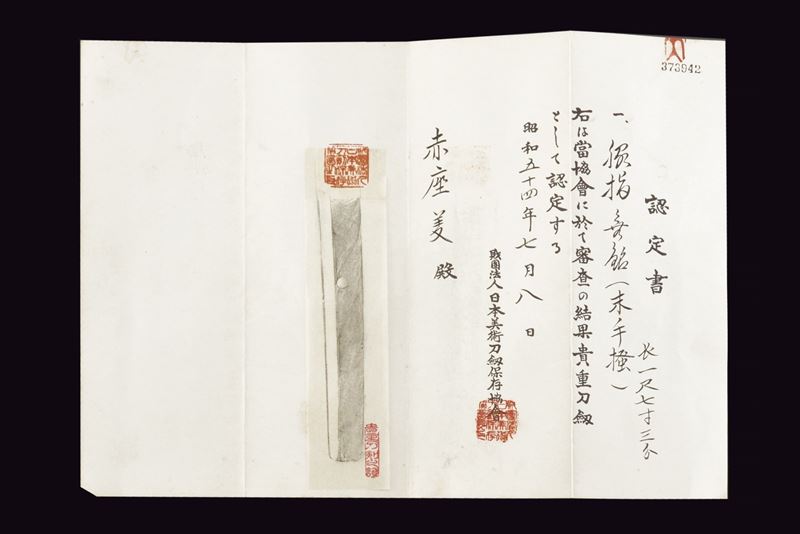 373942
認定書
一、脇指 無銘(末手掻) 長一尺七寸三分
右は當協會に於て審査の結果貴重刀劔
として認定する
昭和五十四年七月八日
財團法人日本美術刀劔保存協會
赤座美殿